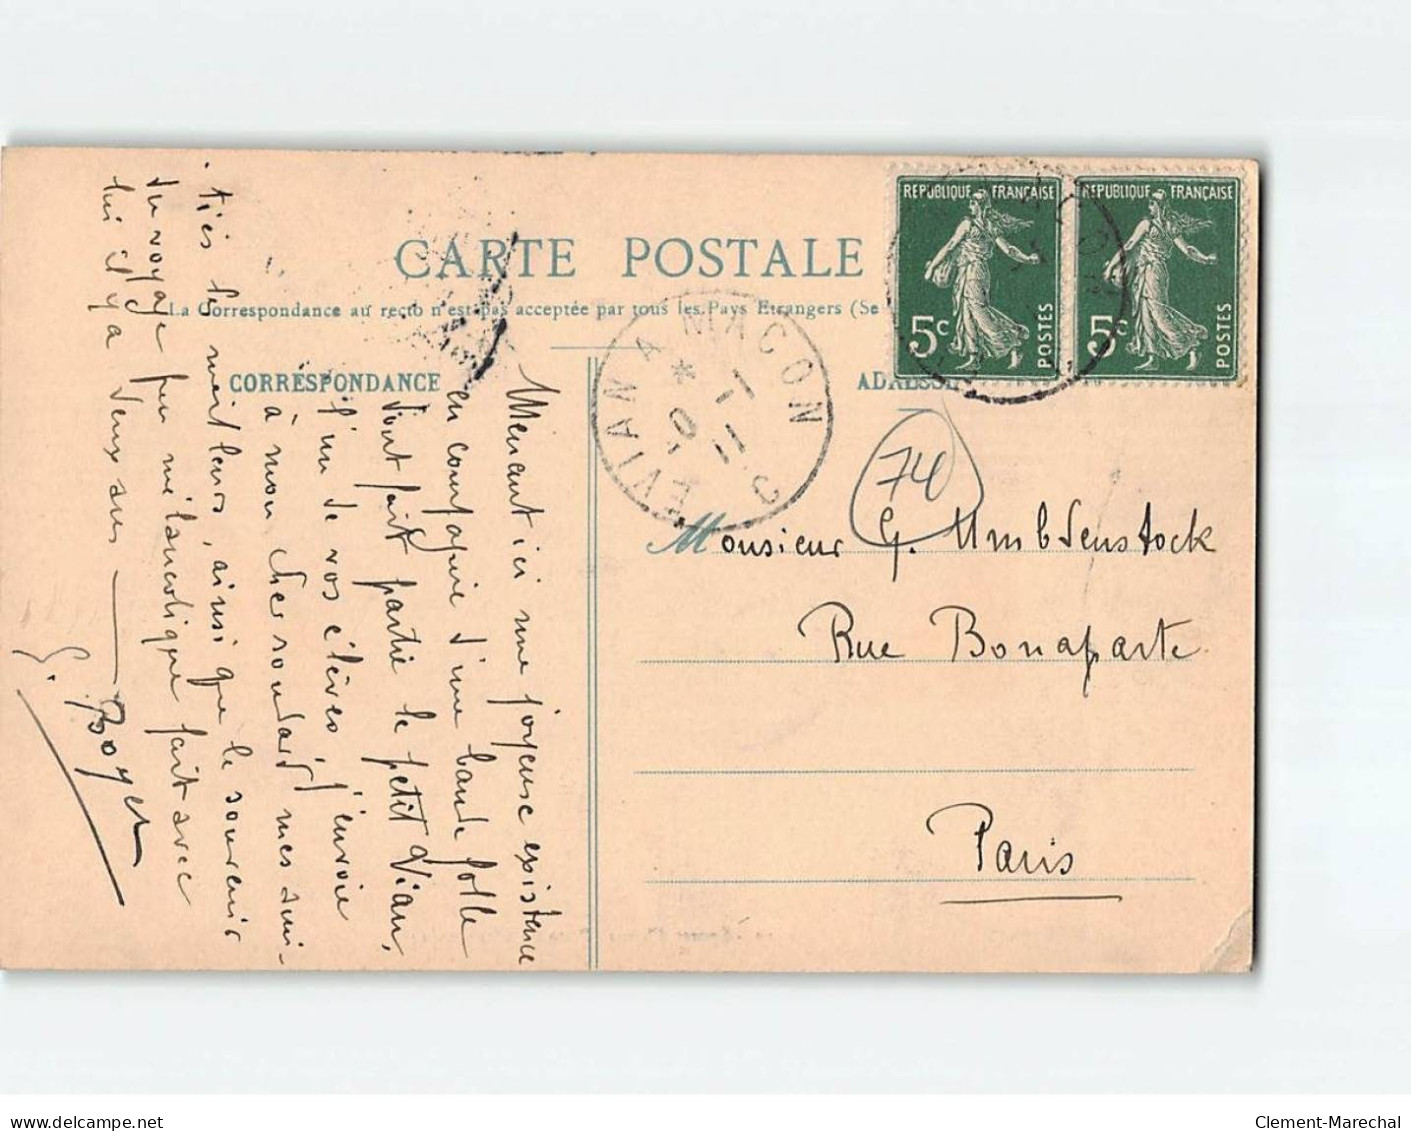 RÉPUBLIQUE FRANÇAISE
5c POSTES
RÉPUBLIQUE FRANÇAISE
5c POSTES
CARTE POSTALE
La Correspondance au recto n'est pas acceptée par tous les Pays Etrangers (Se
CORRESPONDANCE
ADRESSE
EVIAN A MACON
1-1
11
74
Monsieur G. Umbdenstock
Rue Bonaparte
Paris
Menant ici une joyeuse existence
en compagnie d'une bande folle
dont fait partie le petit Vian,
l'un de vos élèves j'envoie
à mon cher soudard mes ami-
tiés les meilleurs, ainsi que le souvenir
du voyage peu mélancolique fait avec
lui il y a deux ans
G. Boyer
Clement-Marechal